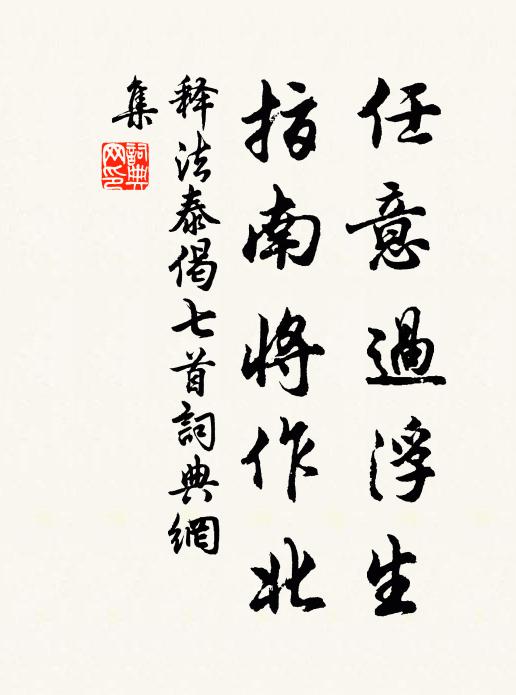 任意過浮生
指南将作北
释法泰偈七首詞典網
集
詞典
网印